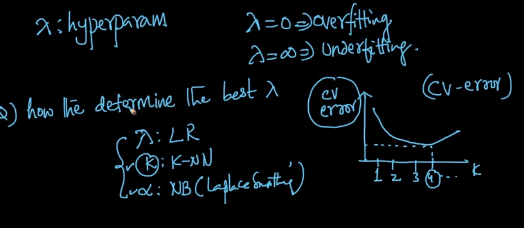 λ: hyperparam
λ=0 ⇒ overfitting
λ=∞ ⇒ Underfitting.
Q) how the determine the best λ
λ: LR
K: K-NN
α: NB (Laplace Smoothing)
CV error
(CV-error)
1 2 3 4 ... K